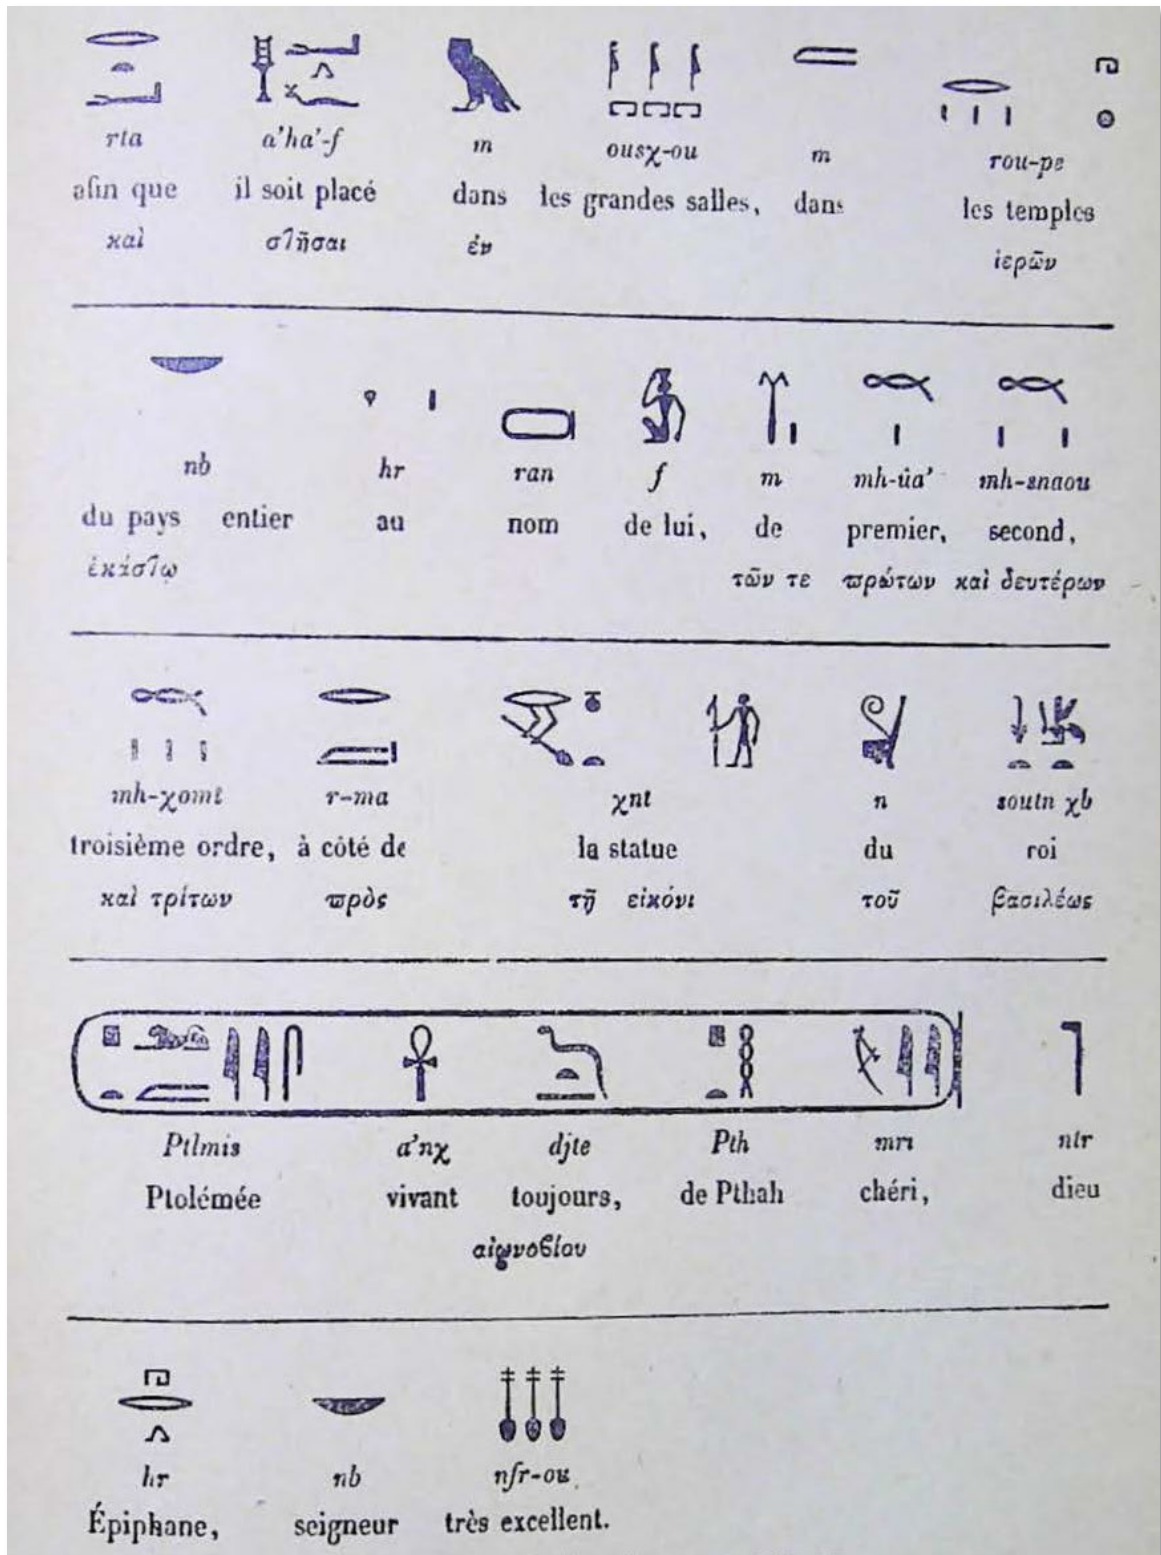 rta a'ha'-f m ousχ-ou m rou-pe
afin que il soit placé dans les grandes salles, dans les temples
καὶ σ͡ῆσαι ἐν ἱερῶν
nb hr ran f m mh-ûa' mh-snaou
du pays entier au nom de lui, de premier, second,
ἑκάσ͡ῳ τῶν τε ϖρώτων καὶ δευτέρων
mh-χomt r-ma χnt n soutn χb
troisième ordre, à côté de la statue du roi
καὶ τρίτων ϖρὸς τῇ εἰκόνι τοῦ βασιλέως
Ptlmis a'nχ djte Pth mri ntr
Ptolémée vivant toujours, de Pthah chéri, dieu
αἰωνοϐίου
hr nb nfr-ou
Épiphane, seigneur très excellent.